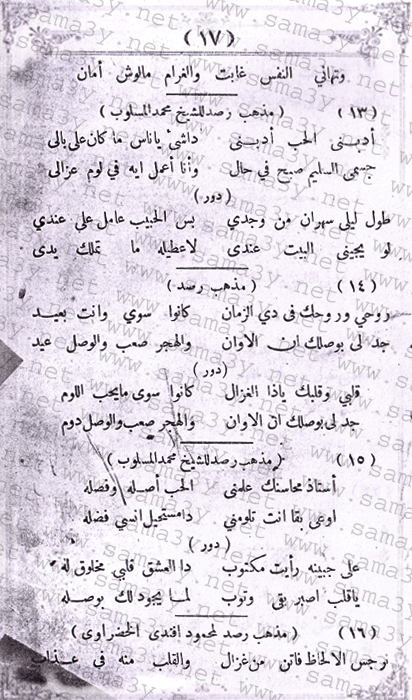 (١٧)
وتهاني النفس غابت والغرام مالوش أمان
(١٣) (مذهب رصد للشيخ محمد المسلوب)
أدبنى الحب أدبنى داشئ ياناس ما كان على بالى
جسمى السليم صبح في حال وأنا أعمل ايه في لوم عزالى
(دور)
طول ليلى سهران من وجدي بس الحبيب عامل على عندي
لو يجينى البيت عندى لاعطيله ما تملك يدى
(١٤) (مذهب رصد)
روحي وروحك فى دي الزمان كانوا سوي وانت بعيد
جد لى بوصلك ان الاوان والهجر صعب والوصل عيد
(دور)
قلبي وقلبك ياذا الغزال كانوا سوى مايحب اللوم
جد لى بوصلك ان الاوان والهجر صعب والوصل دوم
(١٥) (مذهب رصد للشيخ محمد المسلوب)
أستاذ محاسنك علمنى الحب أصله وفصله
اوعى بقا انت تلومني دا مستحيل انسي فضله
(دور)
على جبينه رأيت مكتوب دا العشق قلبي مخلوق له
ياقلب اصبر بقى وتوب لما يجود لك بوصله
(١٦) (مذهب رصد لمحمود افندى الخضراوى)
نرجس الالحاظ فاتن من غزال والقلب منه في عذاب
www.sama3y.net